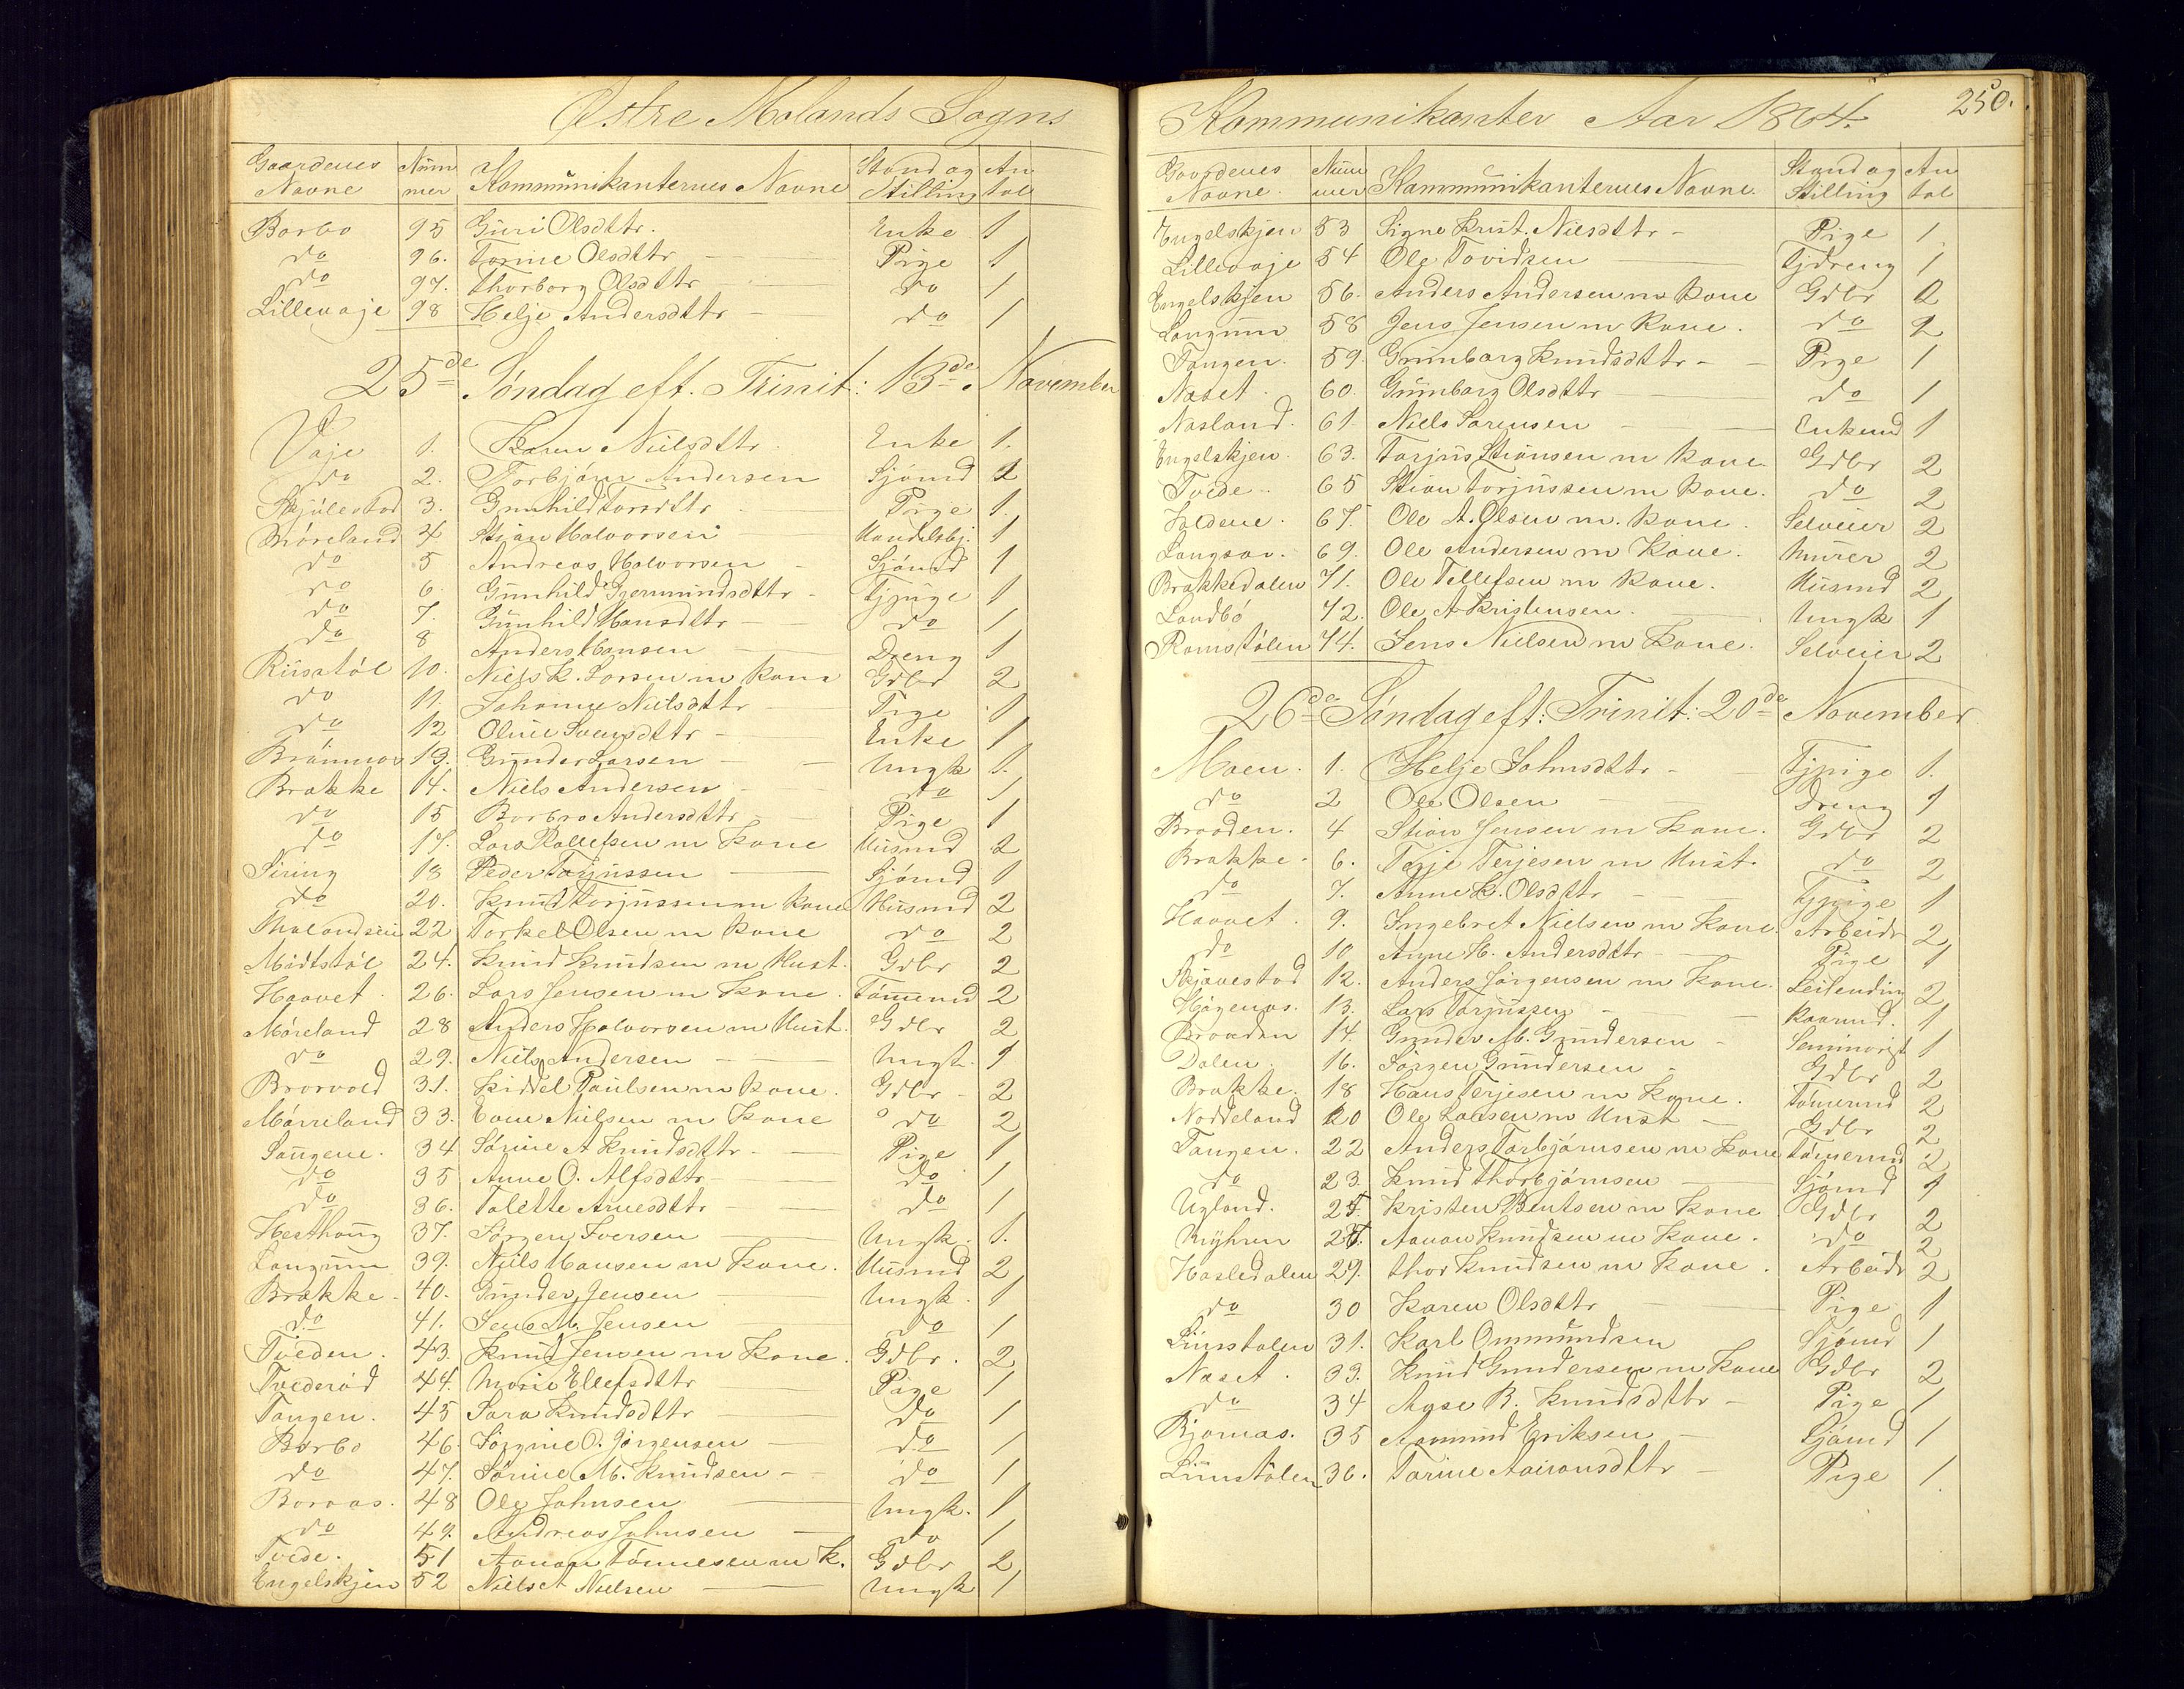 Østre Molands Sogns
Gaardenes Navne Nummer Kommunikanternes Navne Stand og Stilling Antal
Borbo 95 Guri Olsdttr. Enke 1
do 96. Torine Olsdttr Pige 1
do 97. Thorborg Olsdttr do 1
Lillevaje 98 Helje Andersdttr do 1
25de Søndag eft. Trinit: 13de November
Vaje 1. Karen Nielsdttr Enke 1.
do 2. Torbjörn Andersen Sjömd 2
Skjulestad 3. Gunhild Torsdttr Pige 1.
Möreland 4 Stian Halvorsen Handelsbj. 1
do 5 Andreas Halvorsen Sjömd 1
do 6. Gunhild Gjermundsdttr Tjpige 1
do 7. Gunhild Hansdttr do 1
do 8 Anders Hansen Dreng 1
Riisstöl 10. Niels K. Larsen m Kone Gdbr 2
do 11. Johanne Nielsdttr Pige 1
do 12 Oline Svensdttr Enke 1
Brömnes 13. Gunder Larsen Ungk 1.
Brekke 14. Niels Andersen do 1
do 15 Borbro Andersdttr Pige 1
do 17. Lars Rollefsen m Kone Huusmd 2
Siring 18 Peder Torjussen Sjömd 1
do 20. Knud Torjussen m Kone Huusmd 2
22 Torkel Olsen m Kone do 2
Midtstöl 24. Knud Knudsen m Hust. Gdbr 2
Haavet 26. Lars Jensen m Kone Tömmermd 2
Möreland 28 Anders Halvorsen m Hust. Gdbr 2
do 29. Niels Andersen Ungk. 1
Brovold 31. Kiddel Paulsen m Kone Gdbr 2
Mörreland 33. Even Nielsen m Kone do 2
Saugene. 34 Sörine A Knudsdttr Pige 1
do 35 Anne O. Alfsdttr do 1
do 36. Talette Arnesdttr do 1
Hesthaug 37. Jörgen Iversen Ungk. 1.
Langum 39. Niels Hansen m Kone. Huusmd 2
Brekke 40. Gunder Jensen Ungk. 1
do 41. Jens M. Jensen do 1
Tveden. 43. Knud Jensen m Kone. Gdbr. 2
Tvederöd 44. Marie Ellefsdttr Pige 1
Tangen. 45 Sara Knudsdttr do 1
Borbo 46. Jörgine O. Jörgensen do 1
do 47. Sörine M. Knudsen do 1
Boraas. 48 Ole Johnsen Ungk. 1
do 49. Andreas Johnsen do 1
Tvede. 51 Aanon Tönnesen m K. Gdbr 2
Engelskjen 52 Niels A Nielsen Ungk 1
Kommunikanter Aar 1864. 250.
Gaardenes Navne. Nummer Kommunikanternes Navne. Stand og Stilling Antal
Engelskjen 53 Signe Krist. Nielsdttr Pige 1
Lillevaje 54 Ole Tovidsen Tjdreng 1
Engelskjen 56. Anders Andersen m Kone Gdbr 2
Langum 58 Jens Jensen m Kone. do 2
Tangen. 59. Gunborg Knudsdttr Pige 1
Næset 60. Gunborg Olsdttr do 1
Næsland. 61. Niels Sörensen Enkemd 1
Engelskjen. 63. Torjus Stiansen m Kone Gdbr 2
Tvede. 65 Stian Torjussen m Kone. do 2
67. Ole A. Olsen m. Kone Selveier 2
Langsæ. 69. Ole Andersen m Kone. Murer 2
Brekkedalen 71. Ole Tellefsen m Kone. Huusmd 2
Landbö 72. Ole A Kristensen. Ungk 1
Ramstölen 74. Jens Nielsen m Kone. Selveier 2
26de Søndag eft: Trinit: 20de November
Moen. 1. Helje Johnsdttr Tjpige 1.
do 2 Ole Olsen Dreng 1
Braaden. 4 Stian Jensen m Kone. Gdbr 2
Brekke 6. Terje Terjesen m Hust. do 2
do 7. Anne K. Olsdttr Tjpige 1
Haavet. 9. Ingebret Nielsen m Kone. Arbeidr 2
do 10 Anne H. Andersdttr Pige 1
Skjævestad 12. Anders Jörgensen m Kone. Leilending 2
Högenæs. 13. Lars Torjussen Kaarmd. 1
Braaden 14. Gunder M. Gundersen Seminarist 1
Dalen. 16. Jörgen Gundersen Gdbr 2
Brekke. 18 Hans Terjesen m Kone. Tömermd 2
Noddeland 20 Ole Larsen m Hust Gdbr 2
Tangen. 22 Anders Torbjörnsen m Kone Tömermd 2
do 23. Knud Thorbjörnsen Sjömd 1
Ugland. 25. Kristen Bentsen m Kone Gdbr 2
Myhren 27. Aanon Knudsen m Kone. do 2
Hasledalen 29. Thor Knudsen m Kone. Arbeidr 2
do 30 Karen Olsdttr Pige 1
Liinstølen 31. Karl Ommundsen Sjömd 1
Næset. 33. Knud Gundersen m Kone Gdbr 2
do 34 Aase B. Knudsdttr Pige 1
Bjornæs. 35 Aamund Eriksen Sjömd 1
Liinstölen 36. Torine Aanonsdttr Pige 1.